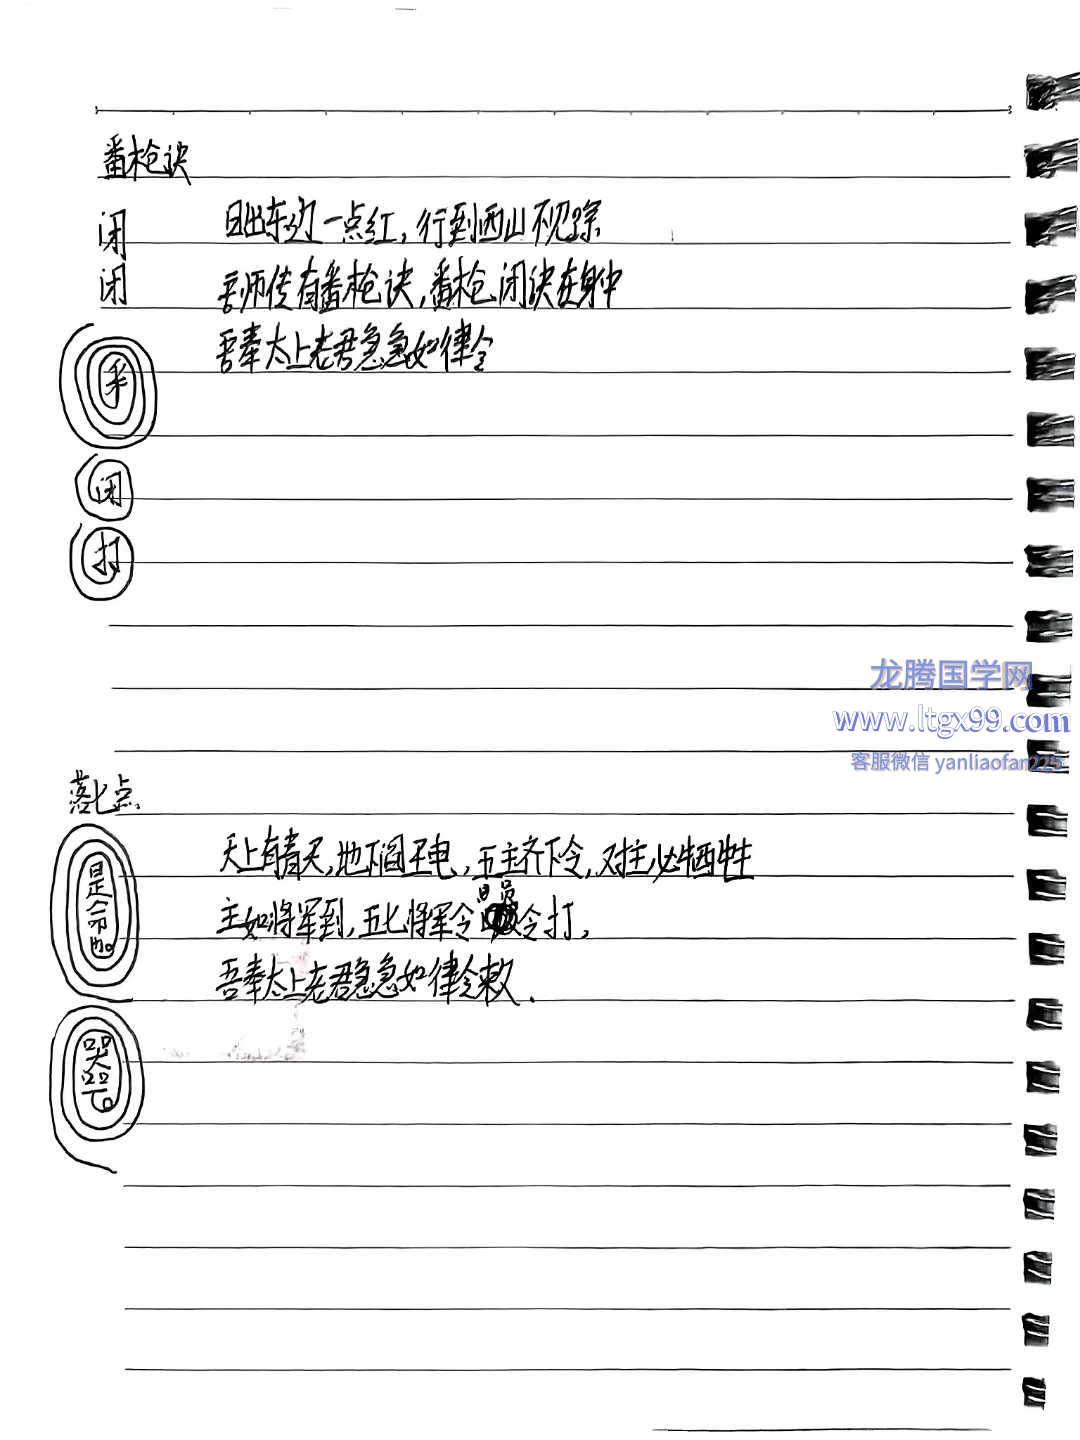 番枪诀
闭
日出东边一点红，行到西山不见踪
闭
吾师传有番枪诀，番枪闭诀在身中
吾奉太上老君急急如律令
闭
打
龙腾国学网
www.ltgx99.com
客服微信 yanliaofan225
落七点
天上有青天，地下阎王电，五主齐下令，对主必牺牲
是命
主如将军到，五七将军令 令打，
吾奉太上老君急急如律令敕.
哭